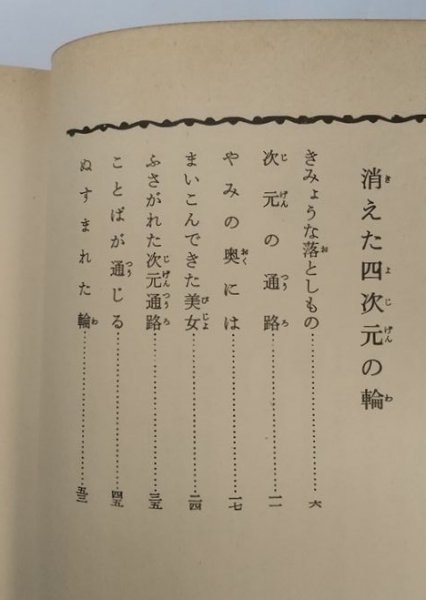 消えた四次元の輪
きみょうな落としもの…………六
次元の通路…………一一
やみの奥には…………一七
まいこんできた美女…………二四
ふさがれた次元通路…………三五
ことばが通じる…………四五
ぬすまれた輪…………五三